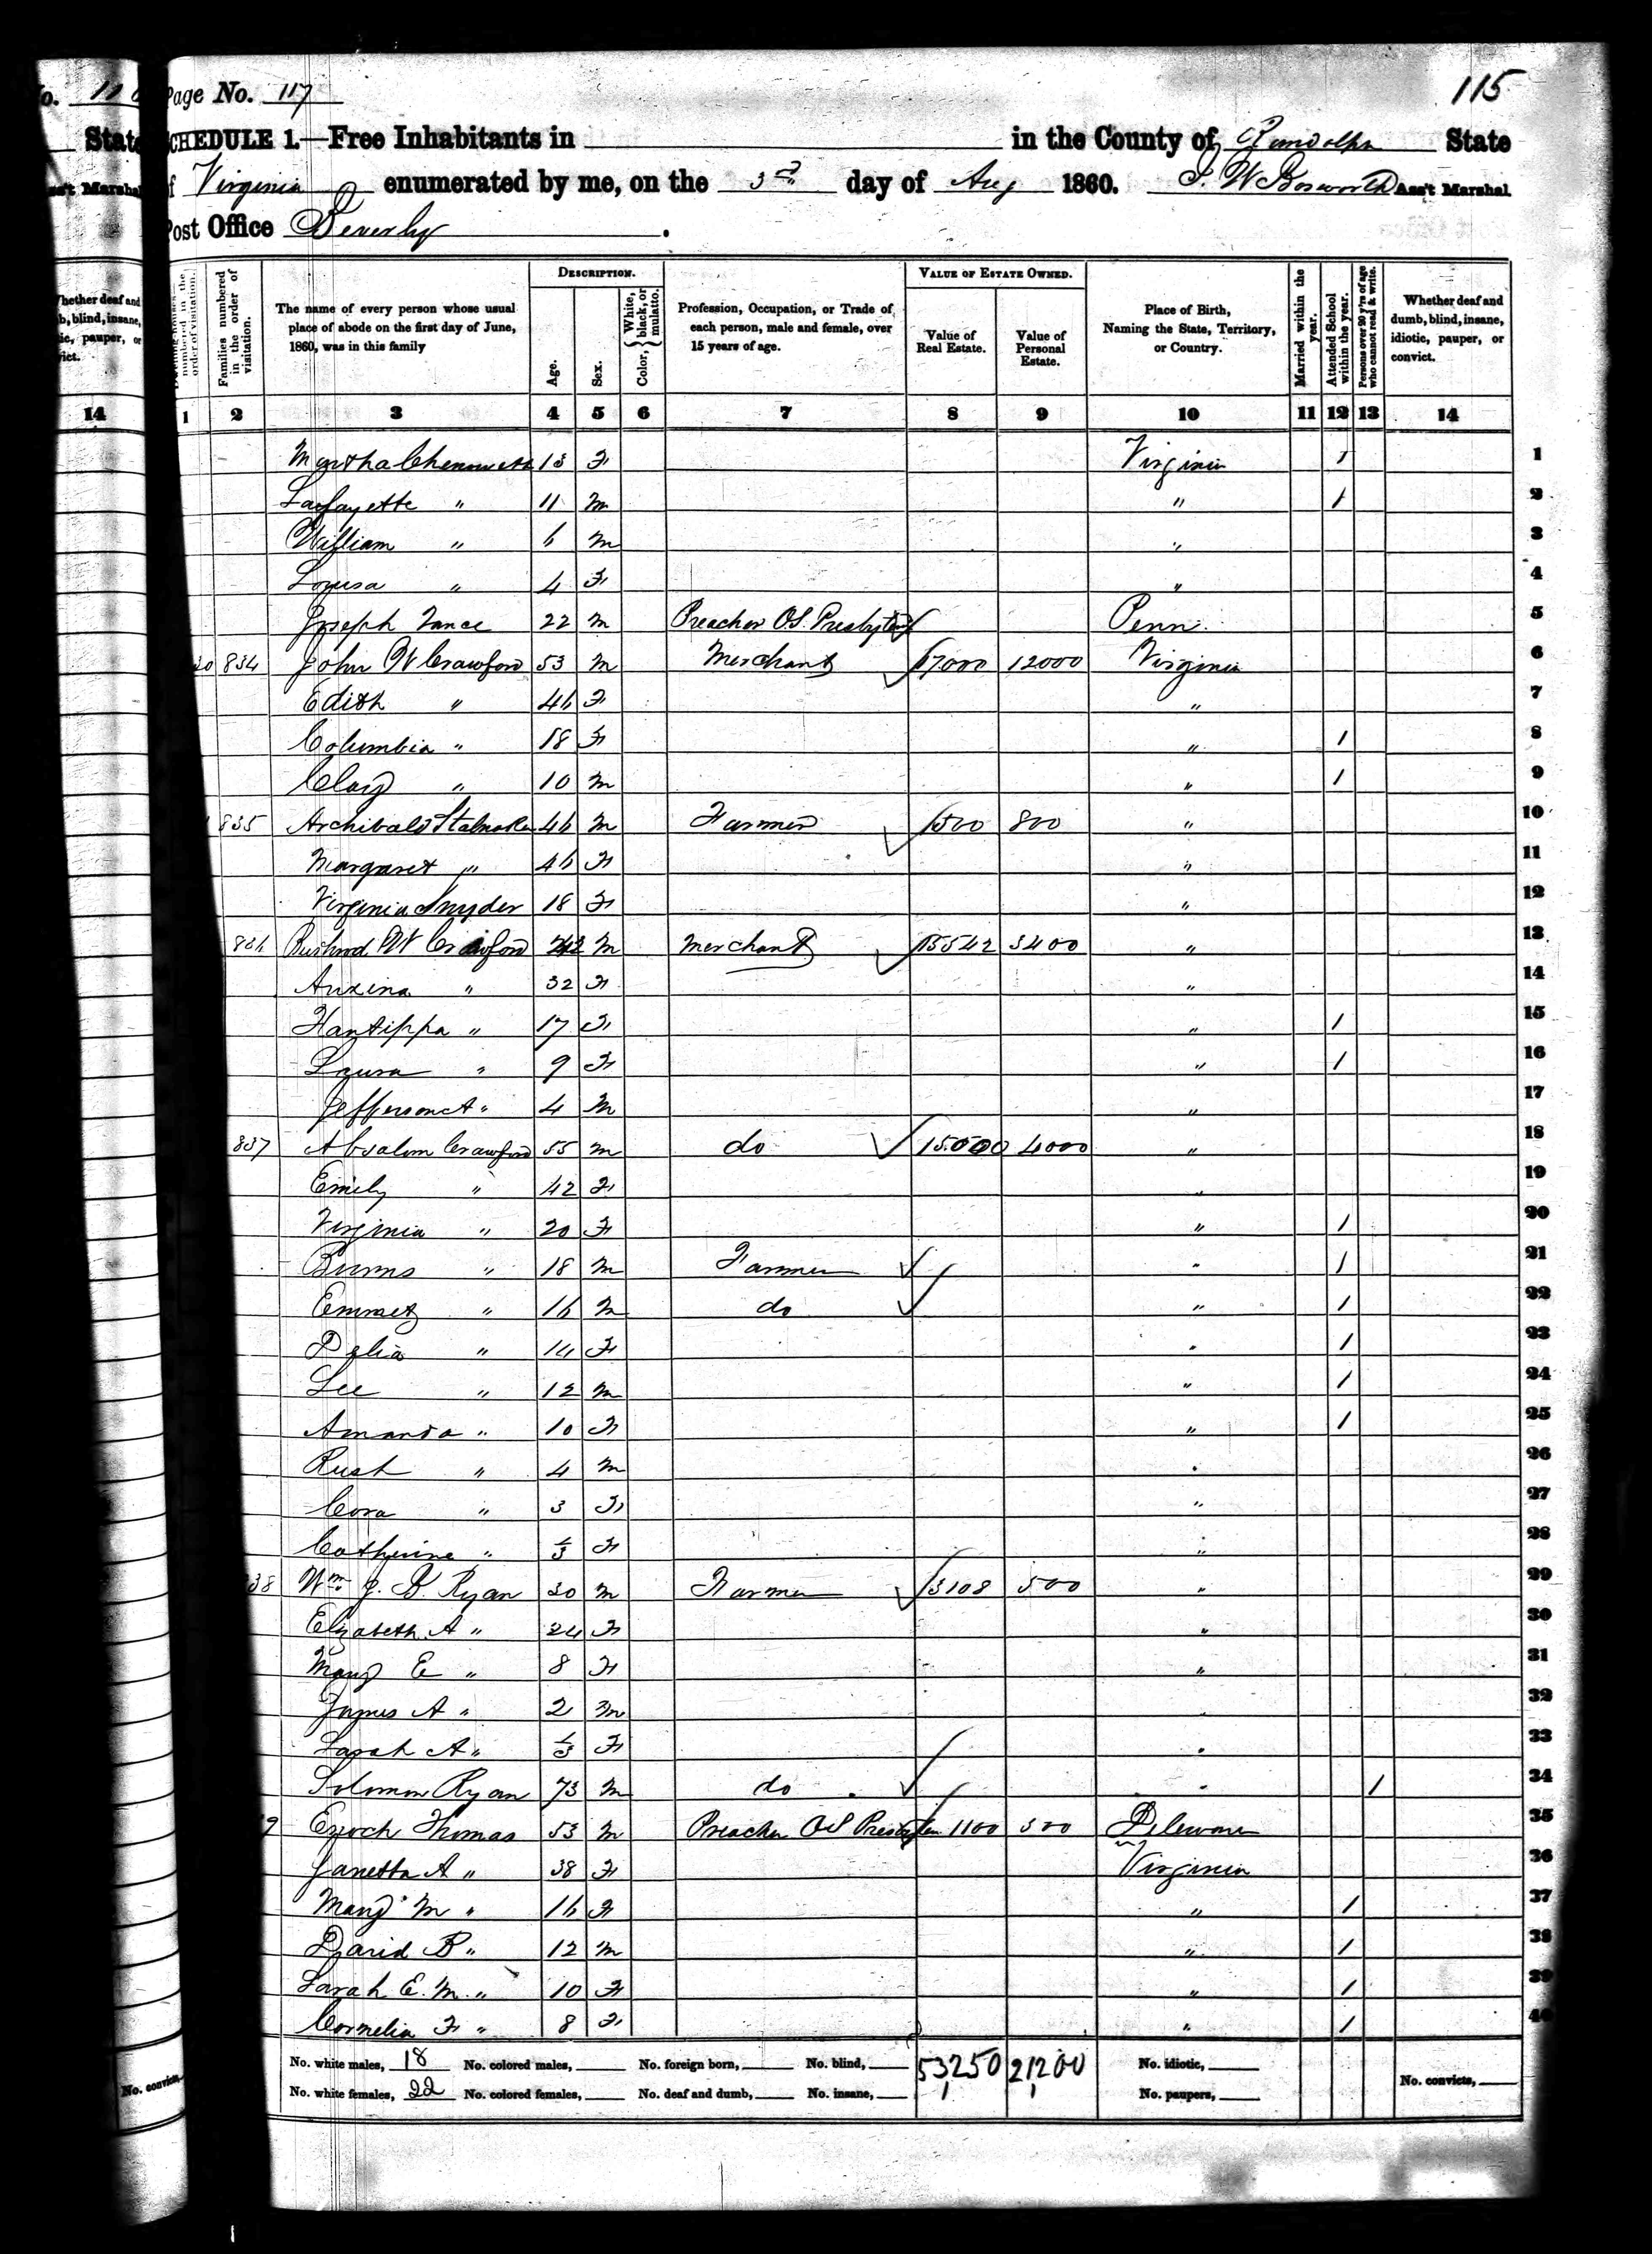 115
Page No. 117
SCHEDULE 1.—Free Inhabitants in in the County of Randolph State
of Virginia enumerated by me, on the 3d day of Aug 1860. J. W Bosworth Ass't Marshal
Post Office Beverly .
State
Ass't Marshal
Whether deaf and dumb, blind, insane, idiotic, pauper, or convict.
14
Dwelling-houses numbered in the order of visitation.
Families numbered in the order of visitation.
The name of every person whose usual place of abode on the first day of June, 1860, was in this family
DESCRIPTION.
Age.
Sex.
Color, {White, black, or mulatto.
Profession, Occupation, or Trade of each person, male and female, over 15 years of age.
VALUE OF ESTATE OWNED.
Value of Real Estate.
Value of Personal Estate.
Place of Birth, Naming the State, Territory, or Country.
Married within the year.
Attended School within the year.
Persons over 20 y'rs of age who cannot read & write.
Whether deaf and dumb, blind, insane, idiotic, pauper, or convict.
1 2 3 4 5 6 7 8 9 10 11 12 13 14
Martha Chenoweth 13 F Virginia 1 1
Lafayette " 11 m " 1 2
William " 6 m " 3
Louisa " 4 F " 4
Joseph Vance 22 m Preacher O.S. Presbytery Penn. 5
834 John W Crawford 53 m Merchant 17000 12000 Virginia 6
Edith " 46 F " 7
Columbia " 18 F " 1 8
Clay " 10 m " 1 9
835 Archibald Stalnaker 46 m Farmer 1500 800 " 10
Margaret " 46 F " 11
Virginia Snyder 18 F " 12
836 Bushrod W Crawford 42 m Merchant 15542 3400 " 13
Auxina " 32 F " 14
Xantippa " 17 F " 1 15
Laura " 9 F " 1 16
Jefferson A " 4 m " 17
837 Absalom Crawford 55 m do 15000 4000 " 18
Emily " 42 F " 19
Virginia " 20 F " 1 20
Burns " 18 m Farmer " 1 21
Emmet " 16 m do " 1 22
Delia " 14 F " 1 23
Lee " 12 m " 1 24
Amanda " 10 F " 1 25
Rush " 4 m " 26
Cora " 3 F " 27
Catherine " 1/3 F " 28
38 Wm. J. B. Ryan 30 m Farmer 3108 500 " 29
Elizabeth A " 24 F " 30
Mary E " 8 F " 31
James A " 2 m " 32
Sarah A " 1/3 F " 33
Solomon Ryan 73 m do " 1 34
9 Enoch Thomas 53 m Preacher O.S. Presbyten 1100 500 Deleware 35
Janetta A " 38 F Virginia 36
Mary M " 16 F " 1 37
David B " 12 m " 1 38
Sarah E. M. " 10 F " 1 39
Cornelia F " 8 F " 1 40
No. white males, 18 No. colored males, No. foreign born, No. blind, 53,250 21,200 No. idiotic,
No. white females, 22 No. colored females, No. deaf and dumb, No. insane, No. paupers, No. convicts,
No. convicts